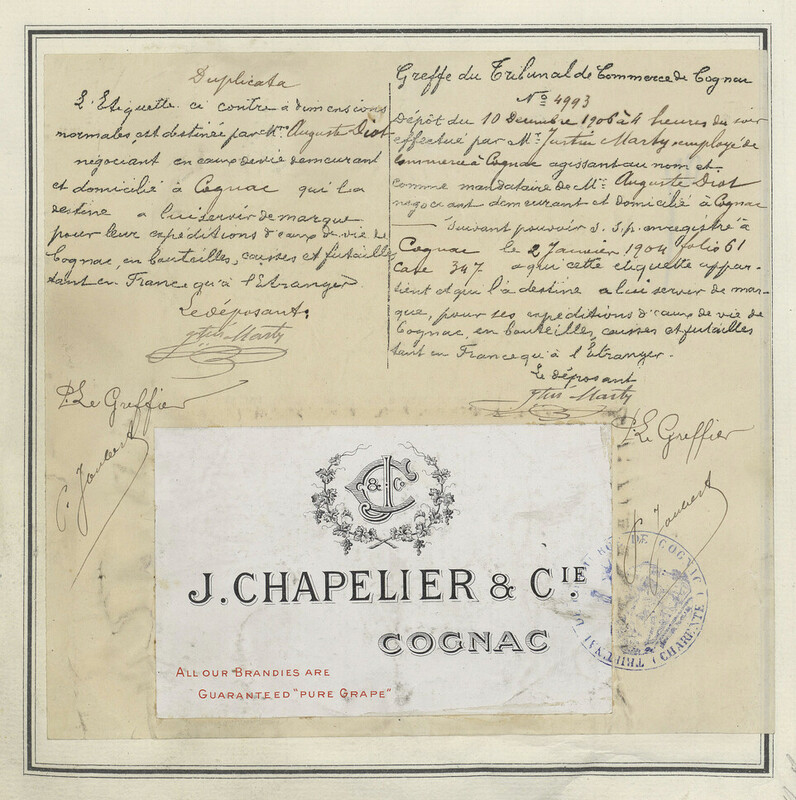 Duplicata
L'Etiquette ci contre à dimensions
normales, est destinée par Mr. Auguste Diot
négociant en eaux de vie demeurant
et domicilié à Cognac qui la
destine a lui servir de marque
pour leur expéditions d'eaux de vie de
Cognac, en bouteilles, caisses et futailles
tant en France qu'à l'Etranger.
Le déposant,
Jtin Marty
P. Le Greffier
C. Joubert
Greffe du Tribunal de Commerce de Cognac
No 4993
Dépôt du 10 Décembre 1906 à 4 heures du soir
effectué par Mr. Justin Marty employé de
commerce à Cognac agissant au nom et
comme mandataire de Mr. Auguste Diot
négociant demeurant et domicilié à Cognac
— suivant pouvoir s. s. p. enregistré à
Cognac le 2 Janvier 1904 folio 61
Case 347 a qui cette etiquette appar-
tient et qui l'à destine a lui server de mar-
que, pour ses expéditions d'eaux de vie de
Cognac, en bouteilles, caisses et futailles
tant en France qu'à l'Etranger.
Le déposant
Jtin Marty
P. Le Greffier
C. Joubert
J C & Co
J. CHAPELIER & CIE.
COGNAC
ALL OUR BRANDIES ARE
GUARANTEED "PURE GRAPE"
DE COGNAC
TRIBUNAL
(CHARENTE)